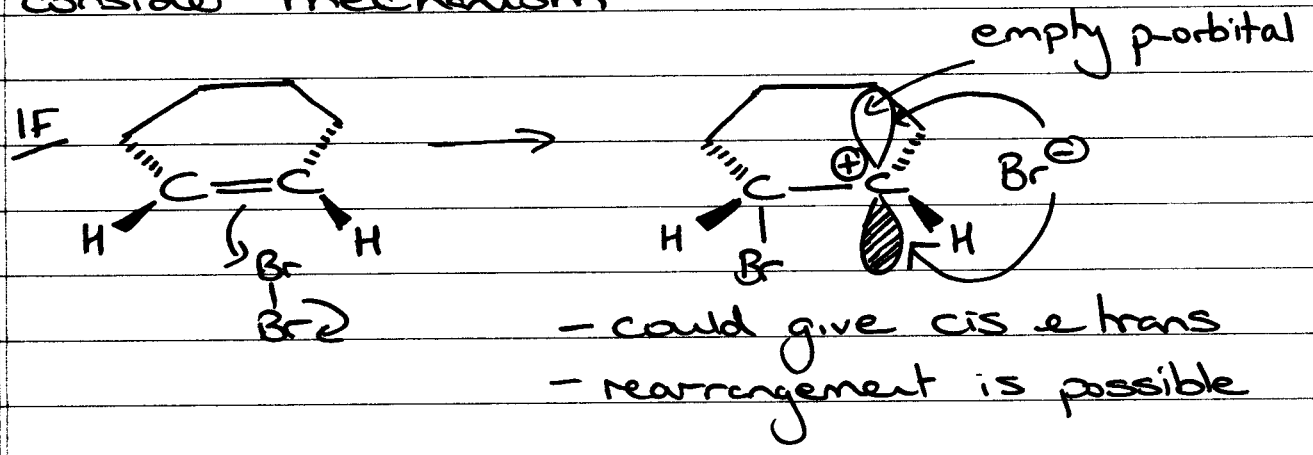 consider mechanism
empty p-orbital
IF
C = C
H H
Br
Br
⊕
C — C
H H
Br
Br ⊖
- could give cis & trans
- rearrangement is possible